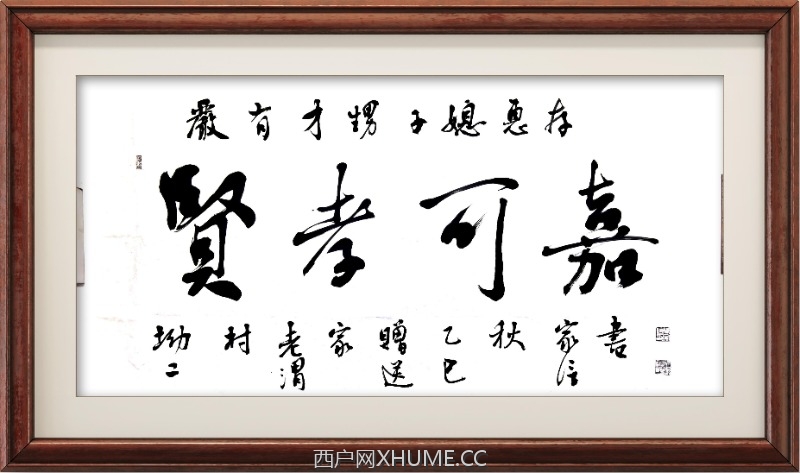 嚴有才甥子媳惠存
賢孝可嘉
坳二村老渭家贈送乙巳秋家信書
西户网XHUME.CC